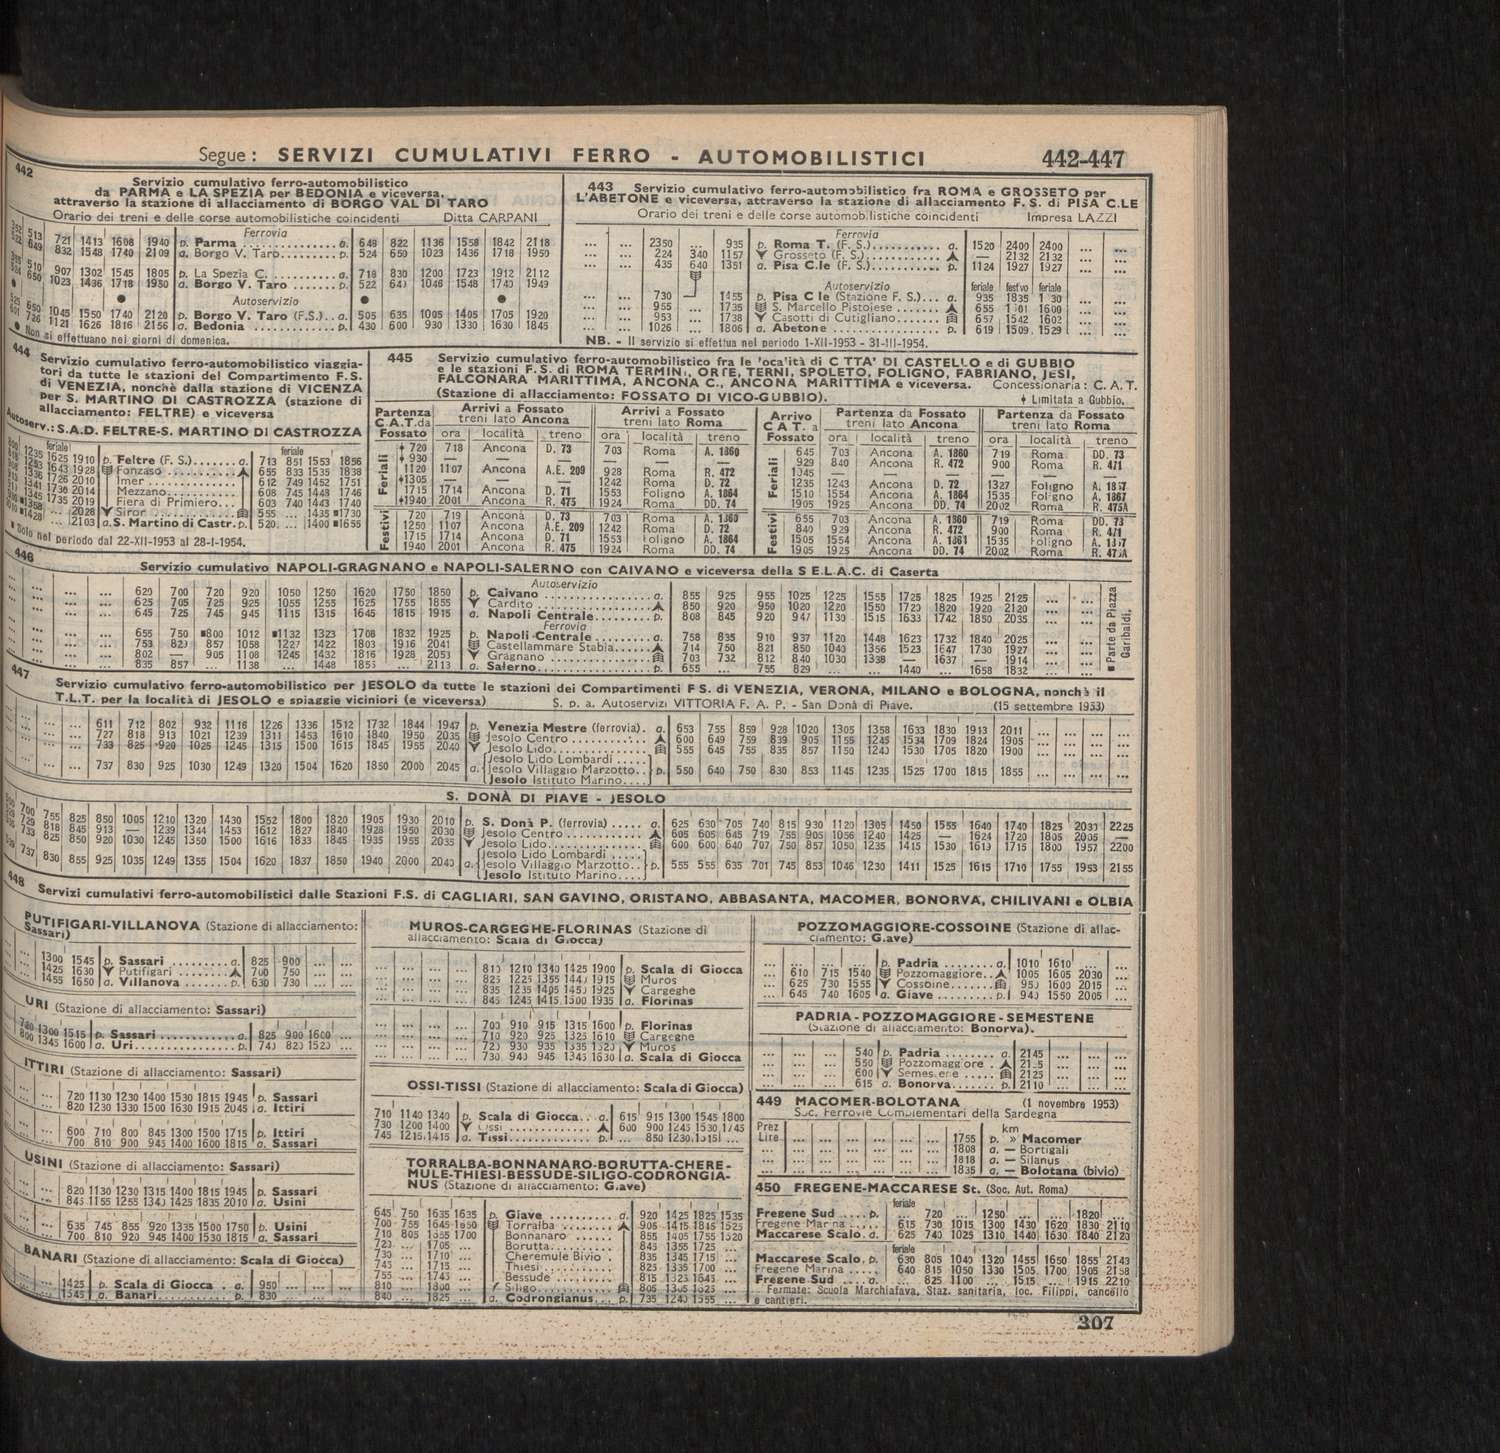 Segue: SERVIZI CUMULATIVI FERRO - AUTOMOBILISTICI 442-447
442
Servizio cumulativo ferro-automobilistico
da PARMA e LA SPEZIA per BEDONIA e viceversa,
attraverso la stazione di allacciamento di BORGO VAL DI TARO
Orario dei treni e delle corse automobilistiche coincidenti Ditta CARPANI
Ferrovia
721 1413 1608 1940 p. Parma a. 648 822 1136 1558 1842 2118
832 1548 1740 2109 a. Borgo V. Taro p. 524 650 1023 1436 1718 1950
907 1302 1545 1805 p. La Spezia C. a. 718 830 1200 1723 1912 2112
1023 1436 1718 1950 a. Borgo V. Taro p. 522 643 1046 1548 1743 1949
Autoservizio
1045 1550 1740 2120 p. Borgo V. Taro (F.S.) a. 505 635 1005 1405 1705 1920
1121 1626 1816 2156 a. Bedonia p. 430 600 930 1330 1630 1845
● Non si effettuano nei giorni di domenica.
443 Servizio cumulativo ferro-automobilistico fra ROMA e GROSSETO per
L'ABETONE e viceversa, attraverso la stazione di allacciamento F. S. di PISA C.LE
Orario dei treni e delle corse automobilistiche coincidenti Impresa LAZZI
Ferrovia
... ... 2350 ... 935 p. Roma T. (F. S.) a. 1520 2400 2400 ... ...
... ... 224 340 1157 Grosseto (F. S.) — 2132 2132 ... ...
... ... 435 640 1351 a. Pisa C.le (F. S.) p. 1124 1927 1927 ... ...
Autoservizio feriale festivo feriale
... ... 730 1455 p. Pisa C le (Stazione F. S.) a. 935 1835 ... ...
... ... 955 ... 1735 S. Marcello Pistoiese 655 1601 1600 ... ...
... ... 953 ... 1738 Casotti di Cutigliano 657 1542 1602 ... ...
... ... 1026 ... 1806 a. Abetone p. 619 1509 1529 ... ...
NB. - Il servizio si effettua nel periodo 1-XII-1953 - 31-III-1954.
444
Servizio cumulativo ferro-automobilistico viaggia-
tori da tutte le stazioni del Compartimento F.S.
di VENEZIA, nonchè dalla stazione di VICENZA
per S. MARTINO DI CASTROZZA (stazione di
allacciamento: FELTRE) e viceversa
Autoserv.: S.A.D. FELTRE-S. MARTINO DI CASTROZZA
feriale feriale
1235 1625 1910 p. Feltre (F. S.) a. 713 851 1553 1856
1253 1643 1928 Fonzaso 655 833 1535 1838
1336 1726 2010 Imer 612 749 1452 1751
1341 1730 2014 Mezzano 608 745 1448 1746
1345 1735 2019 Fiera di Primiero 603 740 1443 1740
... 2028 Siror 555 ... 1435 ■1730
... 2103 a. S. Martino di Castr. p. 520 ... 1400 ■1655
■ Solo nel periodo dal 22-XII-1953 al 28-I-1954.
445
Servizio cumulativo ferro-automobilistico fra le località di CITTA' DI CASTELLO e di GUBBIO
e le stazioni F. S. di ROMA TERMINI, ORTE, TERNI, SPOLETO, FOLIGNO, FABRIANO, JESI,
FALCONARA MARITTIMA, ANCONA C., ANCONA MARITTIMA e viceversa. Concessionaria: C. A. T.
(Stazione di allacciamento: FOSSATO DI VICO-GUBBIO). ♦ Limitata a Gubbio.
Partenza C.A.T. da Fossato | Arrivi a Fossato treni lato Ancona | Arrivi a Fossato treni lato Roma | Arrivo C A T. a Fossato | Partenza da Fossato treni lato Ancona | Partenza da Fossato treni lato Roma
ora località treno ora località treno ora località treno ora località treno
Feriali
♦ 720 718 Ancona D. 73 703 Roma A. 1860 645 703 Ancona A. 1860 719 Roma DD. 73
♦ 930 — — — — — — 929 840 Ancona R. 472 900 Roma R. 471
1120 1107 Ancona A.E. 209 928 Roma R. 472 1045 — — — — — —
♦1305 — — — 1242 Roma D. 72 1235 1243 Ancona D. 72 1327 Foligno A. 1857
1715 1714 Ancona D. 71 1553 Foligno A. 1864 1510 1554 Ancona A. 1864 1535 Foligno A. 1867
♦1940 2001 Ancona R. 475 1924 Roma DD. 74 1905 1925 Ancona DD. 74 2002 Roma R. 475A
Festivi
720 719 Ancona D. 73 703 Roma A. 1860 655 703 Ancona A. 1860 719 Roma DD. 73
1250 1107 Ancona A.E. 209 1242 Roma D. 72 840 929 Ancona R. 472 900 Roma R. 471
1715 1714 Ancona D. 71 1553 Foligno A. 1864 1505 1554 Ancona 1535 Foligno
1940 2001 Ancona R. 475 1924 Roma DD. 74 1905 1925 Ancona DD. 74 2002 Roma R. 475A
446
Servizio cumulativo NAPOLI-GRAGNANO e NAPOLI-SALERNO con CAIVANO e viceversa della S E.L.A.C. di Caserta
Autoservizio
... ... ... ... 620 700 720 920 1050 1250 1620 1750 1850 p. Caivano a. 855 925 955 1025 1225 1555 1725 1825 1925 2125 ... ...
... ... ... ... 625 705 725 925 1055 1255 1625 1755 1855 Cardito 850 920 950 1020 1220 1550 1720 1820 1920 2120 ... ...
... ... ... ... 645 725 745 945 1115 1315 1645 1815 1915 a. Napoli Centrale p. 808 845 920 947 1130 1515 1633 1742 1850 2035 ... ...
Ferrovia
... ... ... ... 655 750 ■800 1012 ■1132 1323 1708 1832 1925 p. Napoli Centrale a. 758 835 910 937 1120 1448 1623 1732 1840 2025 ... ...
... ... ... ... 753 823 857 1058 1227 1422 1803 1916 2041 Castellammare Stabia 714 750 821 850 1043 1356 1523 1647 1730 1927 ... ...
... ... ... ... 802 — 905 1108 1245 1432 1816 1928 2053 Gragnano 703 732 812 840 1030 1338 — 1637 — 1914 ... ...
... ... ... ... 835 857 ... 1138 ... 1448 1855 ... 2113 a. Salerno p. 655 ... 755 829 ... ... 1440 ... 1658 1832 ... ...
■ Parte da Piazza Garibaldi.
447
Servizio cumulativo ferro-automobilistico per JESOLO da tutte le stazioni dei Compartimenti F S. di VENEZIA, VERONA, MILANO e BOLOGNA, nonchè il
T.L.T. per la località di JESOLO e spiaggie viciniori (e viceversa) S. p. a. Autoservizi VITTORIA F. A. P. - San Donà di Piave. (15 settembre 1953)
... ... ... ... 611 712 802 932 1116 1226 1336 1512 1732 1844 1947 p. Venezia Mestre (ferrovia). a. 653 755 859 928 1020 1305 1358 1633 1830 1913 2011 ... ... ... ...
... ... ... ... 727 818 913 1021 1239 1311 1453 1610 1840 1950 2035 Jesolo Centro 600 649 759 839 905 1155 1245 1534 1709 1824 1905 ... ... ... ...
... ... ... ... 733 825 920 1025 1245 1315 1500 1615 1845 1955 2040 Jesolo Lido 555 645 755 835 857 1150 1240 1530 1705 1820 1900 ... ... ... ...
Jesolo Lido Lombardi
... ... ... ... 737 830 925 1030 1249 1320 1504 1620 1850 2000 2045 a. Jesolo Villaggio Marzotto p. 550 640 750 830 853 1145 1235 1525 1700 1815 1855 ... ... ... ...
Jesolo Istituto Marino
S. DONÀ DI PIAVE - JESOLO
700 755 825 850 1005 1210 1320 1430 1552 1800 1820 1905 1930 2010 p. S. Donà P. (ferrovia) a. 625 630 705 740 815 930 1120 1305 1450 1555 1640 1740 1825 2031 2225
729 818 845 913 — 1239 1344 1453 1612 1827 1840 1928 1950 2030 Jesolo Centro 605 605 645 719 755 905 1056 1240 1425 — 1624 1720 1805 2005 —
733 825 850 920 1030 1245 1350 1500 1616 1833 1845 1935 1955 2035 Jesolo Lido 600 600 640 707 750 857 1050 1235 1415 1530 1613 1715 1800 1957 2200
Jesolo Lido Lombardi
737 830 855 925 1035 1249 1355 1504 1620 1837 1850 1940 2000 2040 a. Jesolo Villaggio Marzotto p. 555 555 635 701 745 853 1046 1230 1411 1525 1615 1710 1755 1953 2155
Jesolo Istituto Marino
448
Servizi cumulativi ferro-automobilistici dalle Stazioni F.S. di CAGLIARI, SAN GAVINO, ORISTANO, ABBASANTA, MACOMER, BONORVA, CHILIVANI e OLBIA
PUTIFIGARI-VILLANOVA (Stazione di allacciamento:
Sassari)
1300 1545 p. Sassari a. 825 900 ... ...
1425 1630 Putifigari 700 750 ... ...
1455 1650 a. Villanova p. 630 730 ... ...
URI (Stazione di allacciamento: Sassari)
1300 1515 p. Sassari a. 825 900 1600 ...
800 1345 1600 a. Uri p. 740 820 1520 ...
ITTIRI (Stazione di allacciamento: Sassari)
... ... 720 1130 1230 1400 1530 1815 1945 p. Sassari
... ... 820 1230 1330 1500 1630 1915 2045 a. Ittiri
... ... 600 710 800 845 1300 1500 1715 p. Ittiri
... ... 700 810 900 945 1400 1600 1815 a. Sassari
USINI (Stazione di allacciamento: Sassari)
... ... 820 1130 1230 1315 1400 1815 1945 p. Sassari
... ... 845 1155 1255 1340 1425 1835 2010 a. Usini
... ... 635 745 855 920 1335 1500 1750 p. Usini
... ... 700 810 920 945 1400 1530 1815 a. Sassari
BANARI (Stazione di allacciamento: Scala di Giocca)
... ... 1425 p. Scala di Giocca a. 950 ... ... ...
... ... 1545 a. Banari p. 830 ... ... ...
MUROS-CARGEGHE-FLORINAS (Stazione di
allacciamento: Scala di Giocca)
... ... ... ... 810 1210 1340 1425 1900 p. Scala di Giocca
... ... ... ... 825 1225 1355 1440 1915 Muros
... ... ... ... 835 1235 1405 1450 1925 Cargeghe
... ... ... ... 845 1245 1415 1500 1935 a. Florinas
... ... ... ... 700 910 915 1315 1600 p. Florinas
... ... ... ... 710 920 925 1325 1610 Cargeghe
... ... ... ... 720 930 935 1335 1620 Muros
... ... ... ... 730 940 945 1345 1630 a. Scala di Giocca
OSSI-TISSI (Stazione di allacciamento: Scala di Giocca)
710 1140 1340 p. Scala di Giocca a. 615 915 1300 1545 1800
730 1200 1400 Ossi 600 900 1245 1530 1745
745 1215 1415 a. Tissi p. ... 850 1230 1515 ...
TORRALBA-BONNANARO-BORUTTA-CHERE-
MULE-THIESI-BESSUDE-SILIGO-CODRONGIA-
NUS (Stazione di allacciamento: Giave)
645 750 1635 1635 p. Giave a. 920 1425 1825 1535
700 755 1645 1650 Torralba 905 1415 1815 1525
710 805 1655 1700 Bonnanaro 855 1405 1755 1520
723 ... 1705 ... Borutta 845 1355 1725 ...
730 ... 1710 ... Cheremule Bivio 835 1345 1715 ...
745 ... 1715 ... Thiesi 825 1335 1700 ...
755 ... 1745 ... Bessude 815 1325 1645 ...
810 ... 1800 ... Siligo 805 1305 1625 ...
840 ... 1825 ... a. Codrongianus p. 735 1240 1555 ...
POZZOMAGGIORE-COSSOINE (Stazione di allac-
ciamento: Giave)
... ... ... ... p. Padria a. 1010 1610 ... ...
... 610 715 1540 Pozzomaggiore 1005 1605 2030 ...
... 625 730 1555 Cossoine 950 1600 2015 ...
... 645 740 1605 a. Giave p. 940 1550 2005 ...
PADRIA-POZZOMAGGIORE-SEMESTENE
(Stazione di allacciamento: Bonorva).
... ... ... 540 p. Padria a. 2145 ... ... ...
... ... ... 550 Pozzomaggiore 2135 ... ... ...
... ... ... 600 Semestene 2125 ... ... ...
... ... ... 615 a. Bonorva p. 2110 ... ... ...
449 MACOMER-BOLOTANA (1 novembre 1953)
Soc. Ferrovie Complementari della Sardegna
Prez. km
Lire ... ... ... ... ... 1755 p. » Macomer
... ... ... ... ... ... 1808 a. — Bortigali
... ... ... ... ... ... 1818 a. — Silanus
... ... ... ... ... ... 1835 a. — Bolotana (bivio)
450 FREGENE-MACCARESE St. (Soc. Aut. Roma)
feriale
Fregene Sud p. ... 720 ... 1250 ... ... 1820 ...
Fregene Marina 615 730 1015 1300 1430 1620 1830 2110
Maccarese Scalo a. 625 740 1025 1310 1440 1630 1840 2120
feriale
Maccarese Scalo p. 630 805 1040 1320 1455 1650 1855 2143
Fregene Marina 640 815 1050 1330 1505 1700 1905 2158
Fregene Sud a. ... 825 1100 ... 1515 ... 1915 2210
Fermate: Scuola Marchiafava, Staz. sanitaria, loc. Filippi, cancello
e cantieri.
307